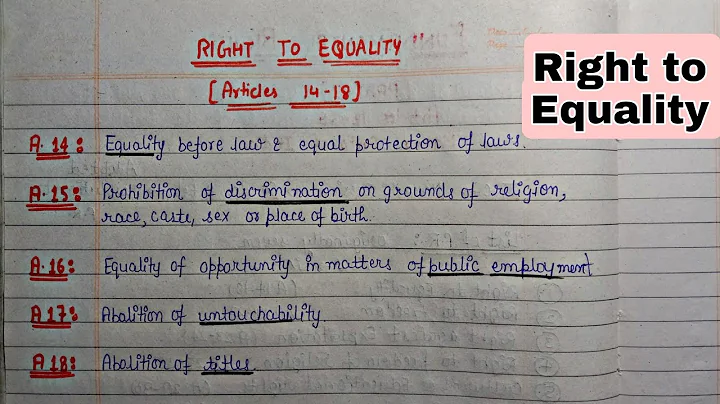 RIGHT TO EQUALITY
[Articles 14-18]
Right to
Equality
A.14: Equality before law & equal protection of laws.
A.15: Prohibition of discrimination on grounds of religion,
race, caste, sex or place of birth.
A.16: Equality of opportunity in matters of public employment
A.17: Abolition of untouchability.
A.18: Abolition of titles